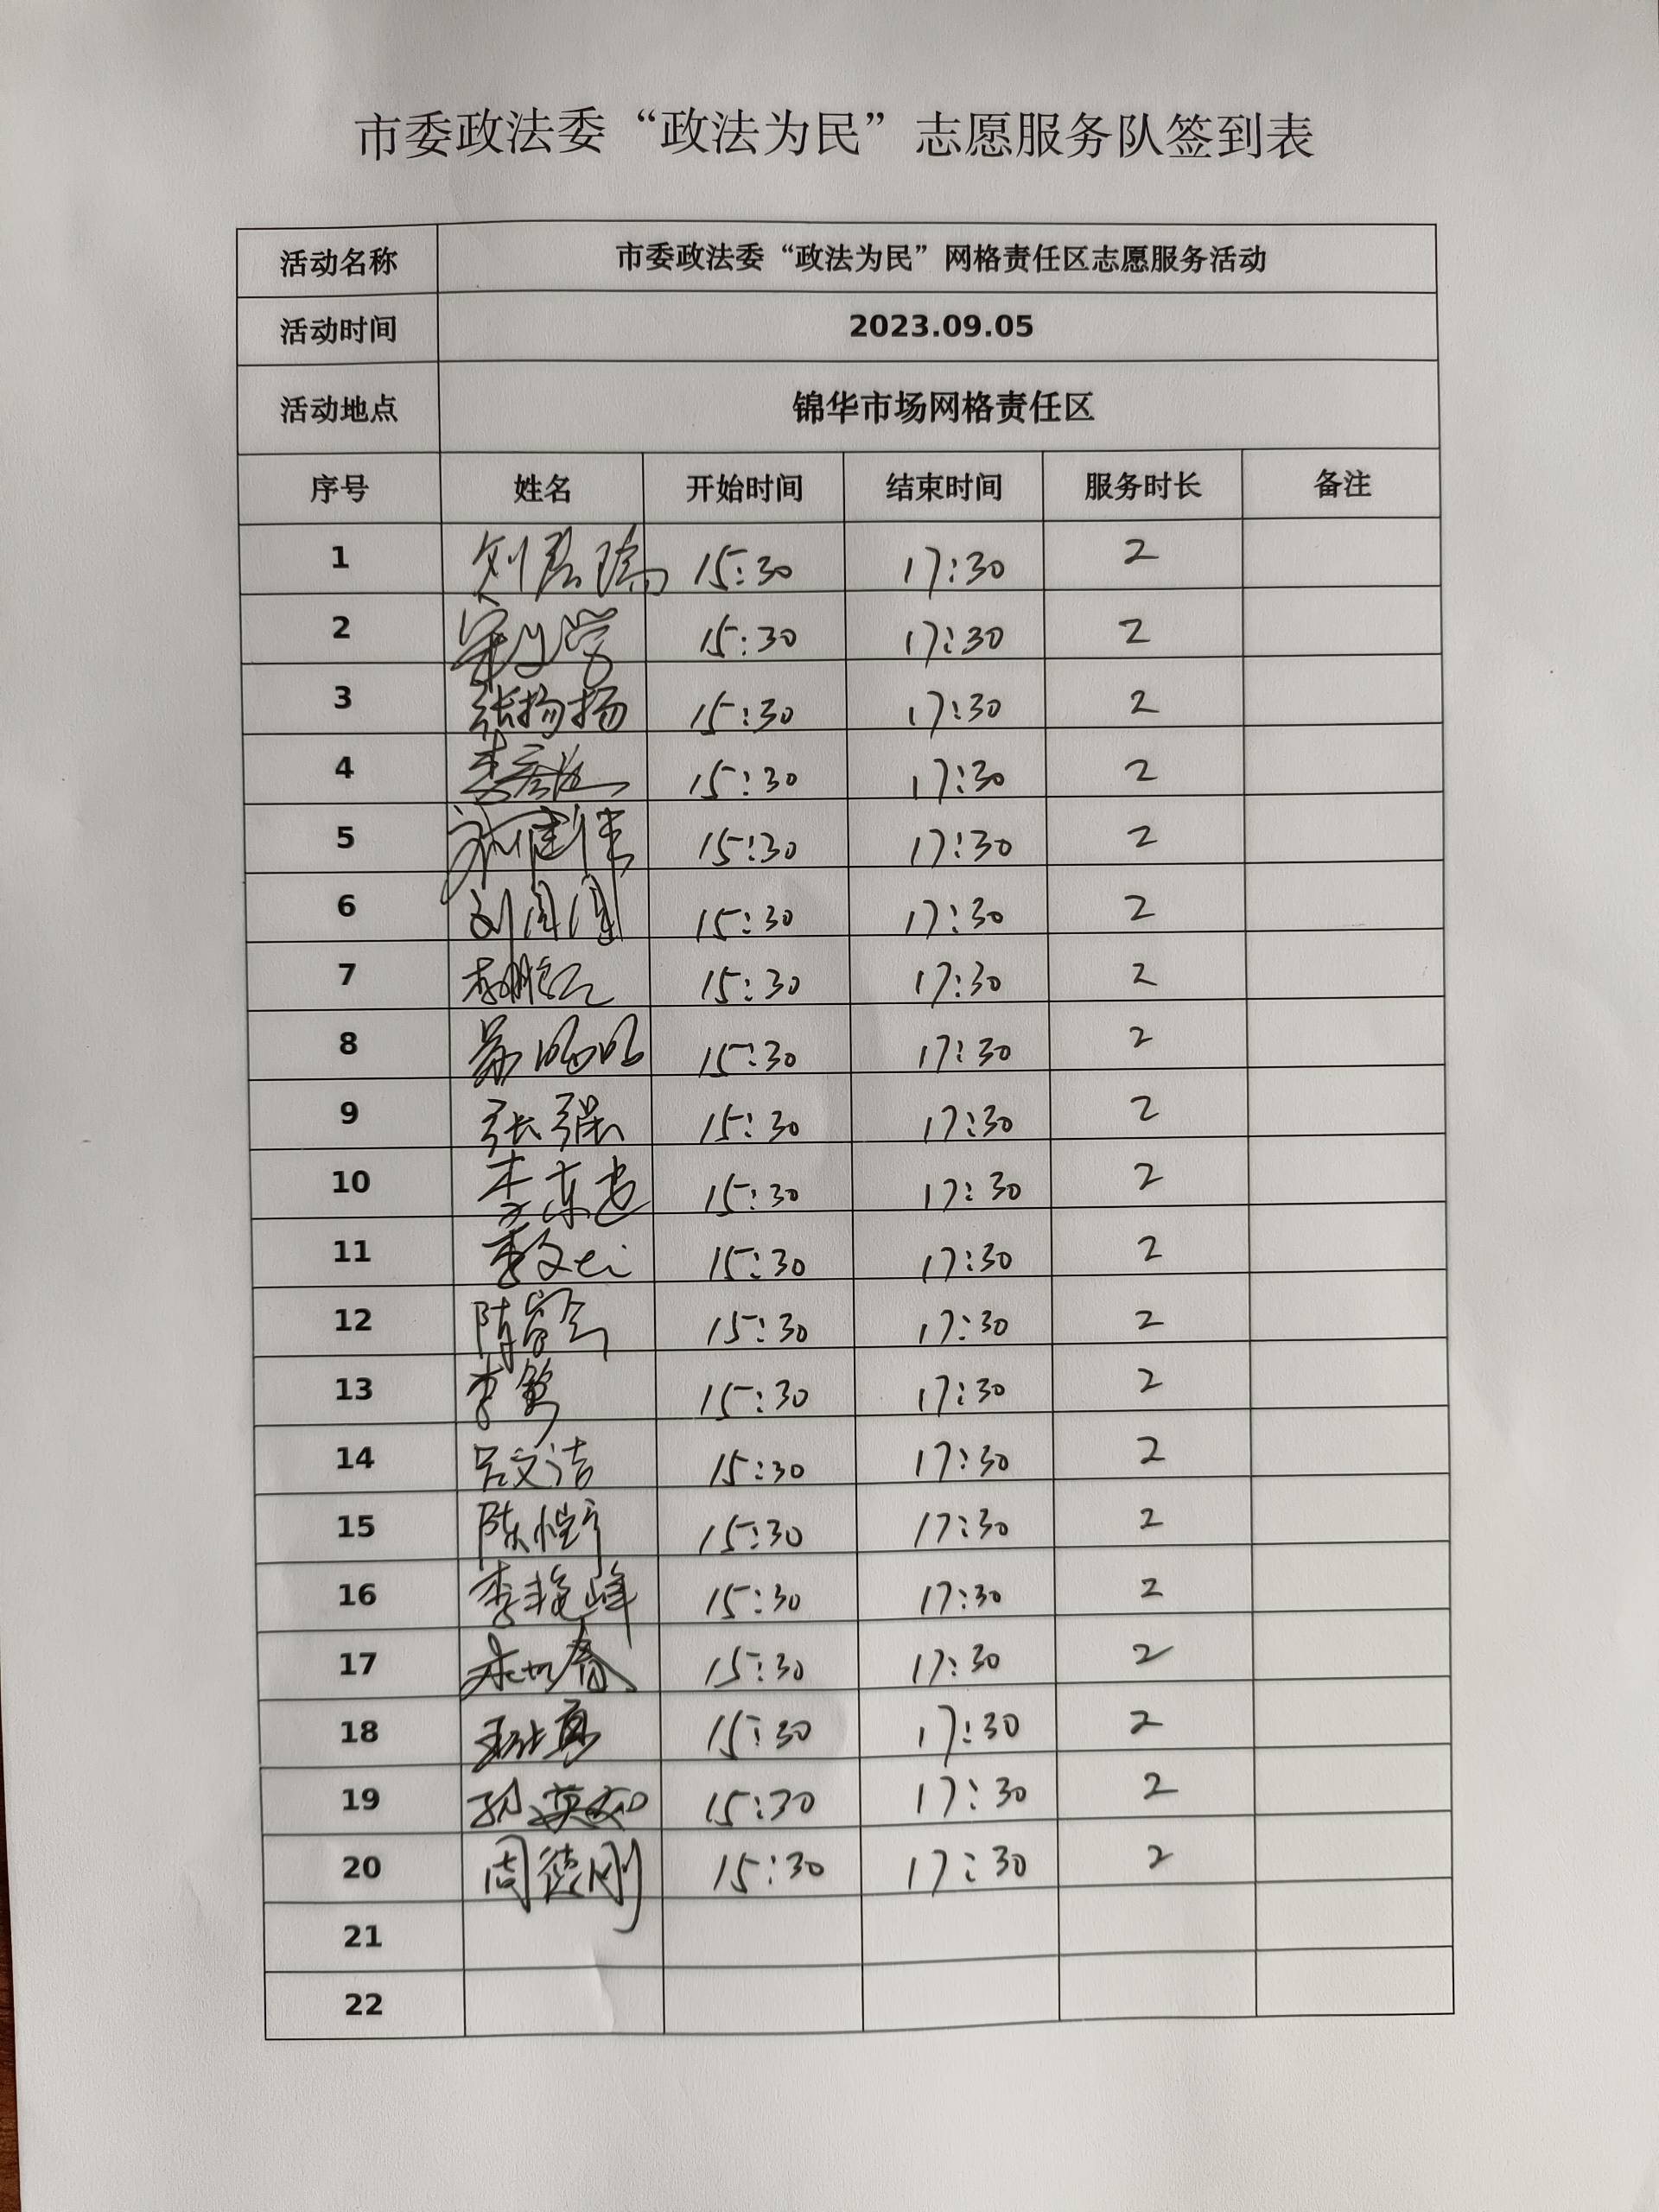 市委政法委“政法为民”志愿服务队签到表
活动名称 市委政法委“政法为民”网格责任区志愿服务活动
活动时间 2023.09.05
活动地点 锦华市场网格责任区
序号 姓名 开始时间 结束时间 服务时长 备注
1 刘 15:30 17:30 2
2 15:30 17:30 2
3 张扬扬 15:30 17:30 2
4 李 15:30 17:30 2
5 15:30 17:30 2
6 刘团团 15:30 17:30 2
7 15:30 17:30 2
8 15:30 17:30 2
9 张强 15:30 17:30 2
10 李东 15:30 17:30 2
11 李文 15:30 17:30 2
12 15:30 17:30 2
13 李 15:30 17:30 2
14 吕文洁 15:30 17:30 2
15 陈恺宁 15:30 17:30 2
16 李艳峰 15:30 17:30 2
17 15:30 17:30 2
18 15:30 17:30 2
19 孙英 15:30 17:30 2
20 周德刚 15:30 17:30 2
21
22